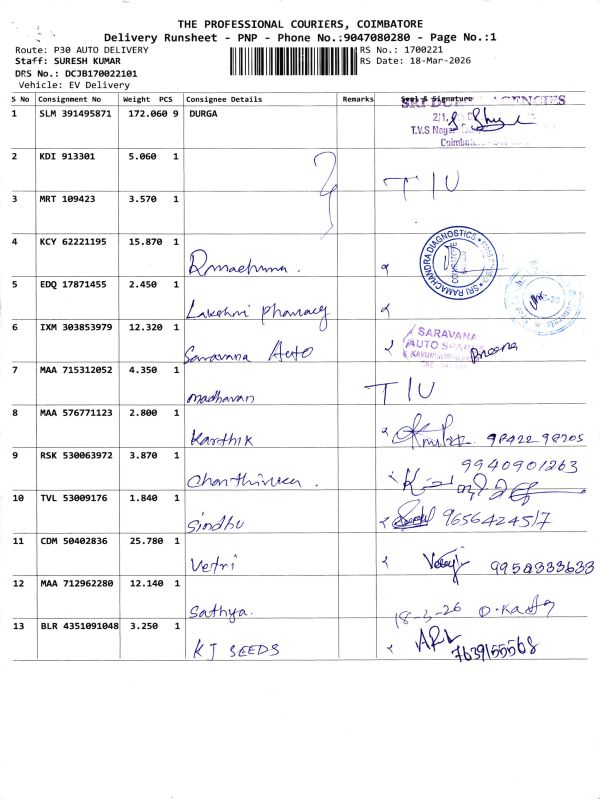 THE PROFESSIONAL COURIERS, COIMBATORE
Delivery Runsheet - PNP - Phone No.:9047080280 - Page No.:1
Route: P30 AUTO DELIVERY RS No.: 1700221
Staff: SURESH KUMAR RS Date: 18-Mar-2026
DRS No.: DCJB170022101
Vehicle: EV Delivery
S No Consignment No Weight PCS Consignee Details Remarks Seal & Signature
1 SLM 391495871 172.060 9 DURGA
T.V.S Nagar
2 KDI 913301 5.060 1
TIU
3 MRT 109423 3.570 1
4 KCY 62221195 15.870 1
SRI RAMACHANDRA DIAGNOSTICS
5 EDQ 17871455 2.450 1
Lakshmi Pharmacy
6 IXM 303853979 12.320 1
Saravana Auto
SARAVANA
AUTO SPARES
7 MAA 715312052 4.350 1
madhavan TIU
8 MAA 576771123 2.800 1
Karthik 98422 98205
9 RSK 530063972 3.870 1
9940901263
10 TVL 53009176 1.840 1
Sindhu 9656424517
11 CDM 50402836 25.780 1
Vetri 9950333633
12 MAA 712962280 12.140 1
Sathya. 18-3-26
13 BLR 4351091048 3.250 1
KJ SEEDS 7639155568